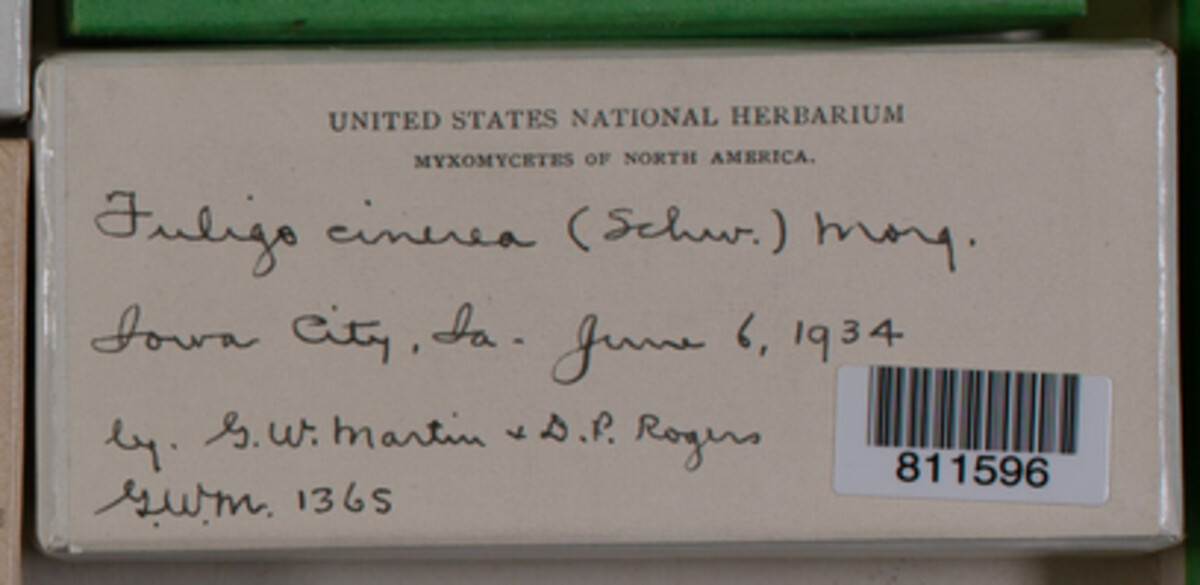 UNITED STATES NATIONAL HERBARIUM
MYXOMYCETES OF NORTH AMERICA.
Fuligo cinerea (Schw.) Morg.
Iowa City, Ia. June 6, 1934
by. G.W. Martin + D.P. Rogers
G.W.M. 1365
811596